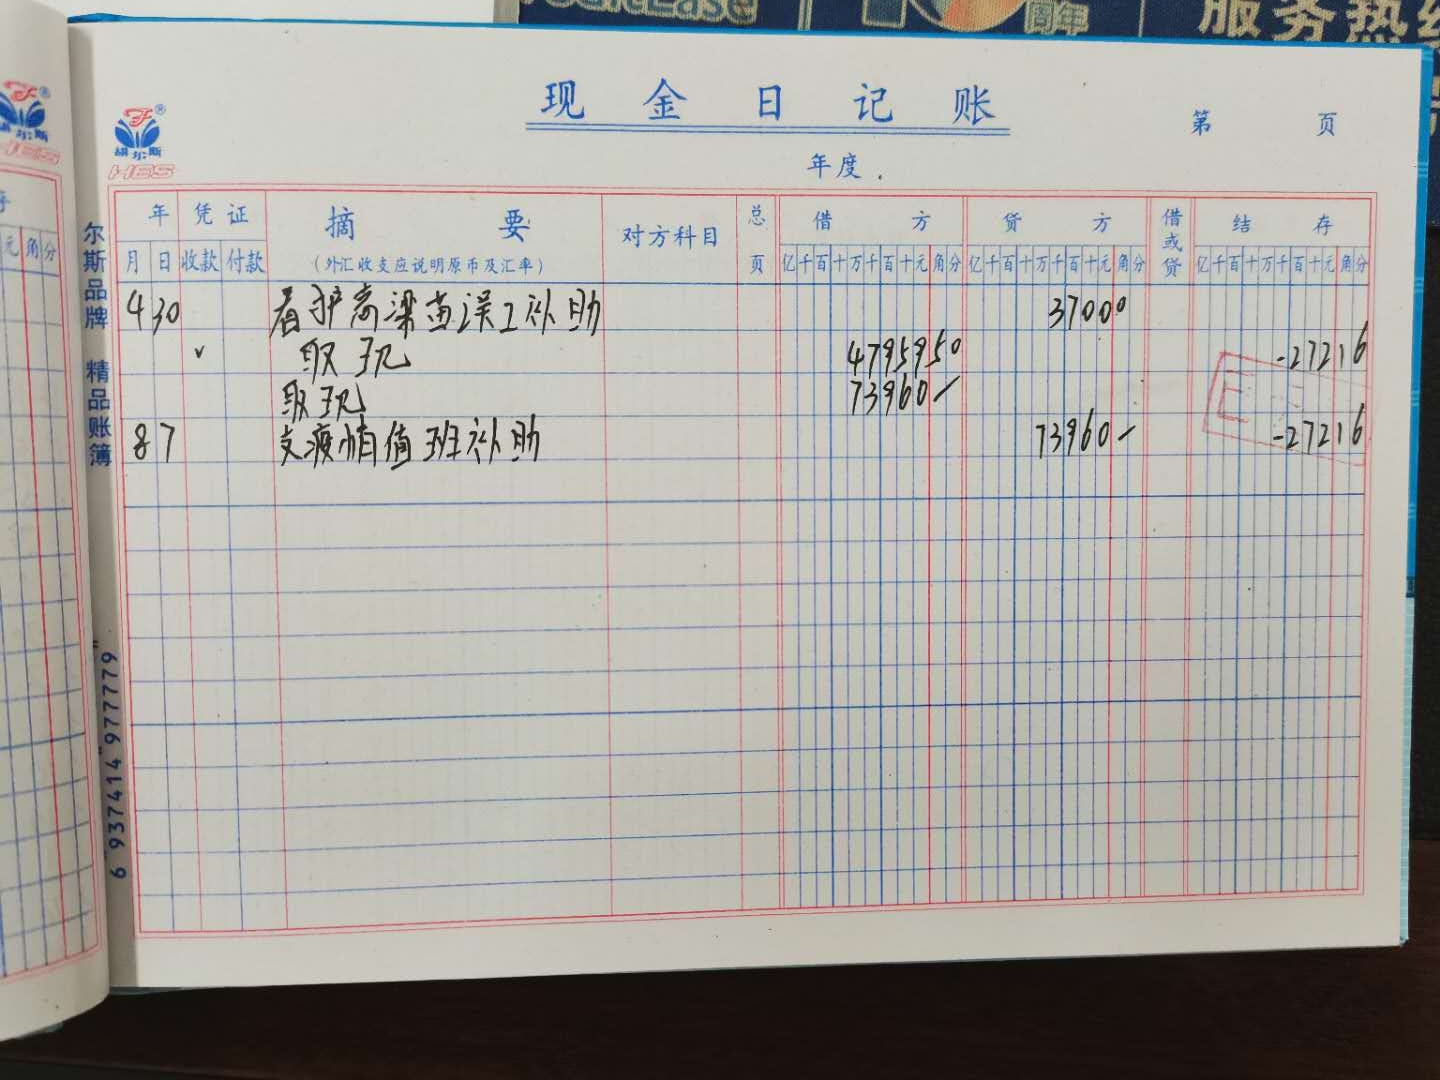 周年
服务热线
现金日记账
第 页
年度
胡尔斯
HBS
年 凭证 摘要 对方科目 总页 借方 贷方 借或贷 结存
月 日 收款 付款 (外汇收支应说明原币及汇率) 亿千百十万千百十元角分 亿千百十万千百十元角分 亿千百十万千百十元角分
元角分
4 30 看护高粱苗误工补助 37000
√ 取现 4795950 -27216
取现 73960-
8 7 支疫情值班补助 73960- -27216
尔斯品牌 精品账簿
6 937414 977779